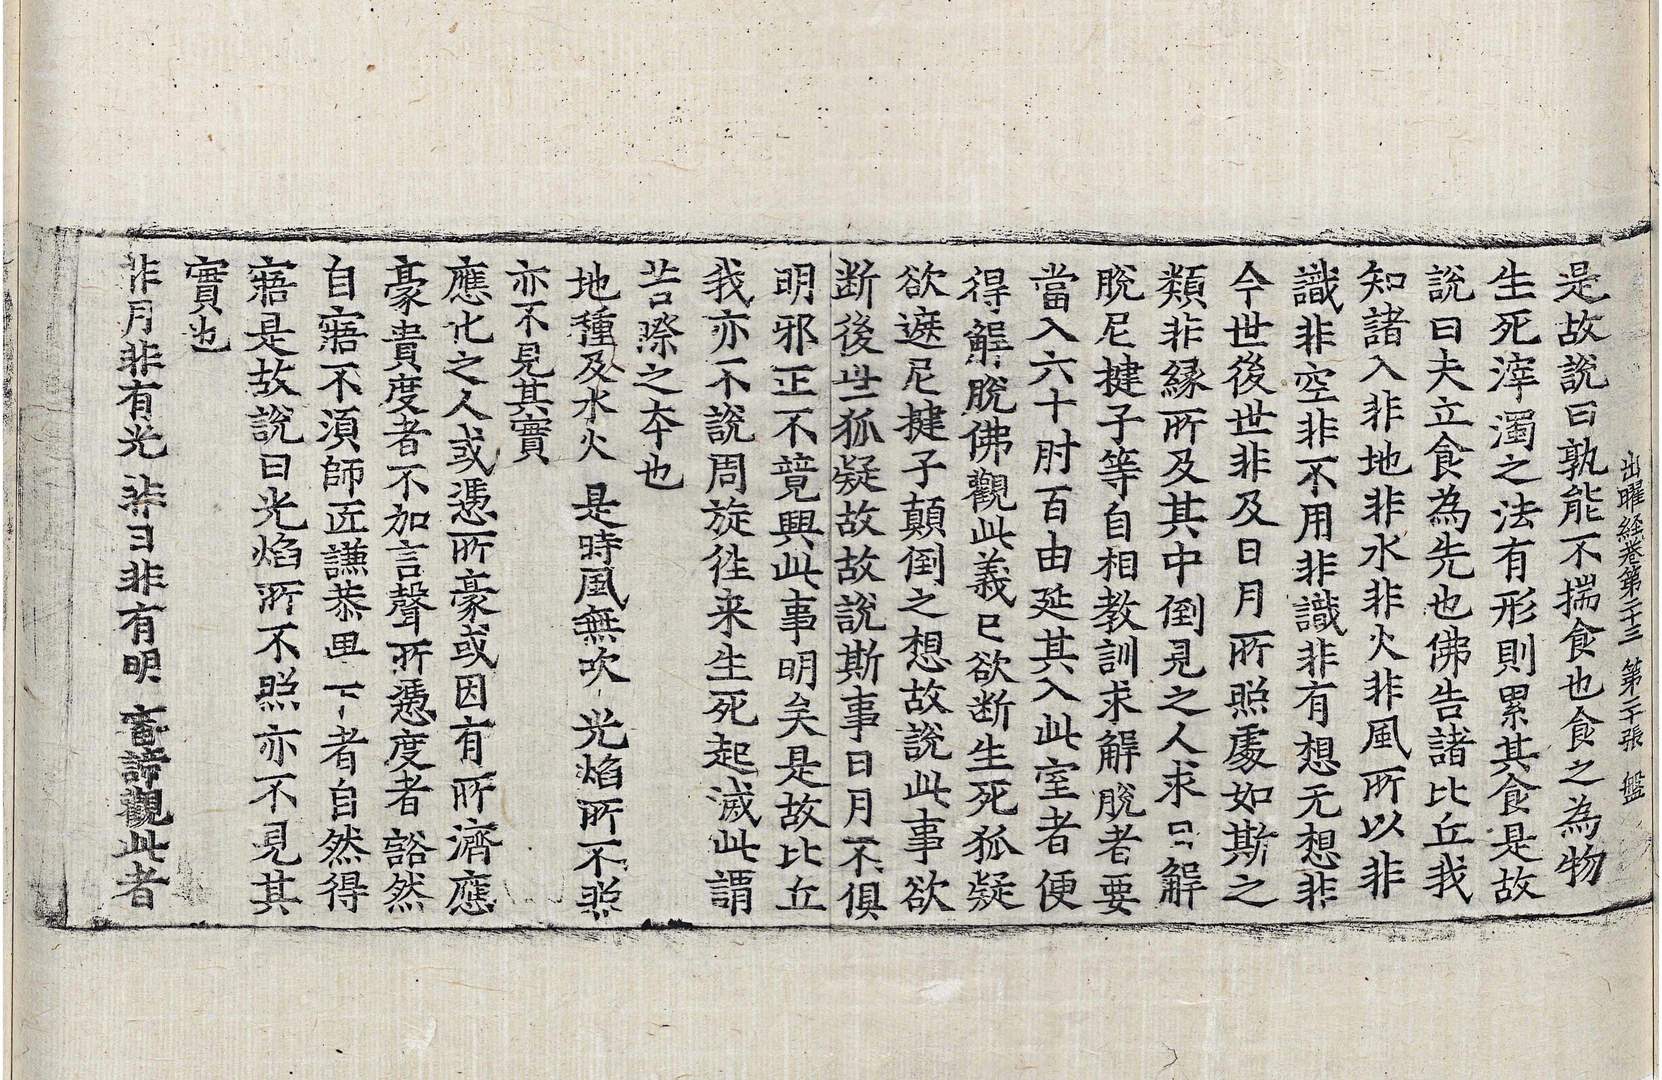 出曜経卷第二十三 第二十張 盤
是故說曰孰能不揣食也食之為物
生死滓濁之法有形則累其食是故
說曰夫立食為先也佛告諸比丘我
知諸入非地非水非火非風所以非
識非空非不用非識非有想无想非
今世後世非及日月所照處如斯之
類非緣所及其中倒見之人求只解
脫尼揵子等自相教訓求解脫者要
當入六十肘百由延其入此室者便
得解脫佛觀此義已欲断生死狐疑
欲遮尼揵子顛倒之想故說此事欲
断後世狐疑故故說斯事日月不俱
明邪正不竟興此事明矣是故比丘
我亦不說周旋徃来生死起滅此謂
苦際之夲也
地種及水火 是時風無吹 光焰所不照
亦不見其實
應化之人或憑所豪或因有所濟應
豪貴度者不加言聲所憑度者豁然
自寤不湏師匠謙恭卑下者自然得
寤是故說曰光焰所不照亦不見其
實也
非月非有光 非日非有明 審諦觀此者